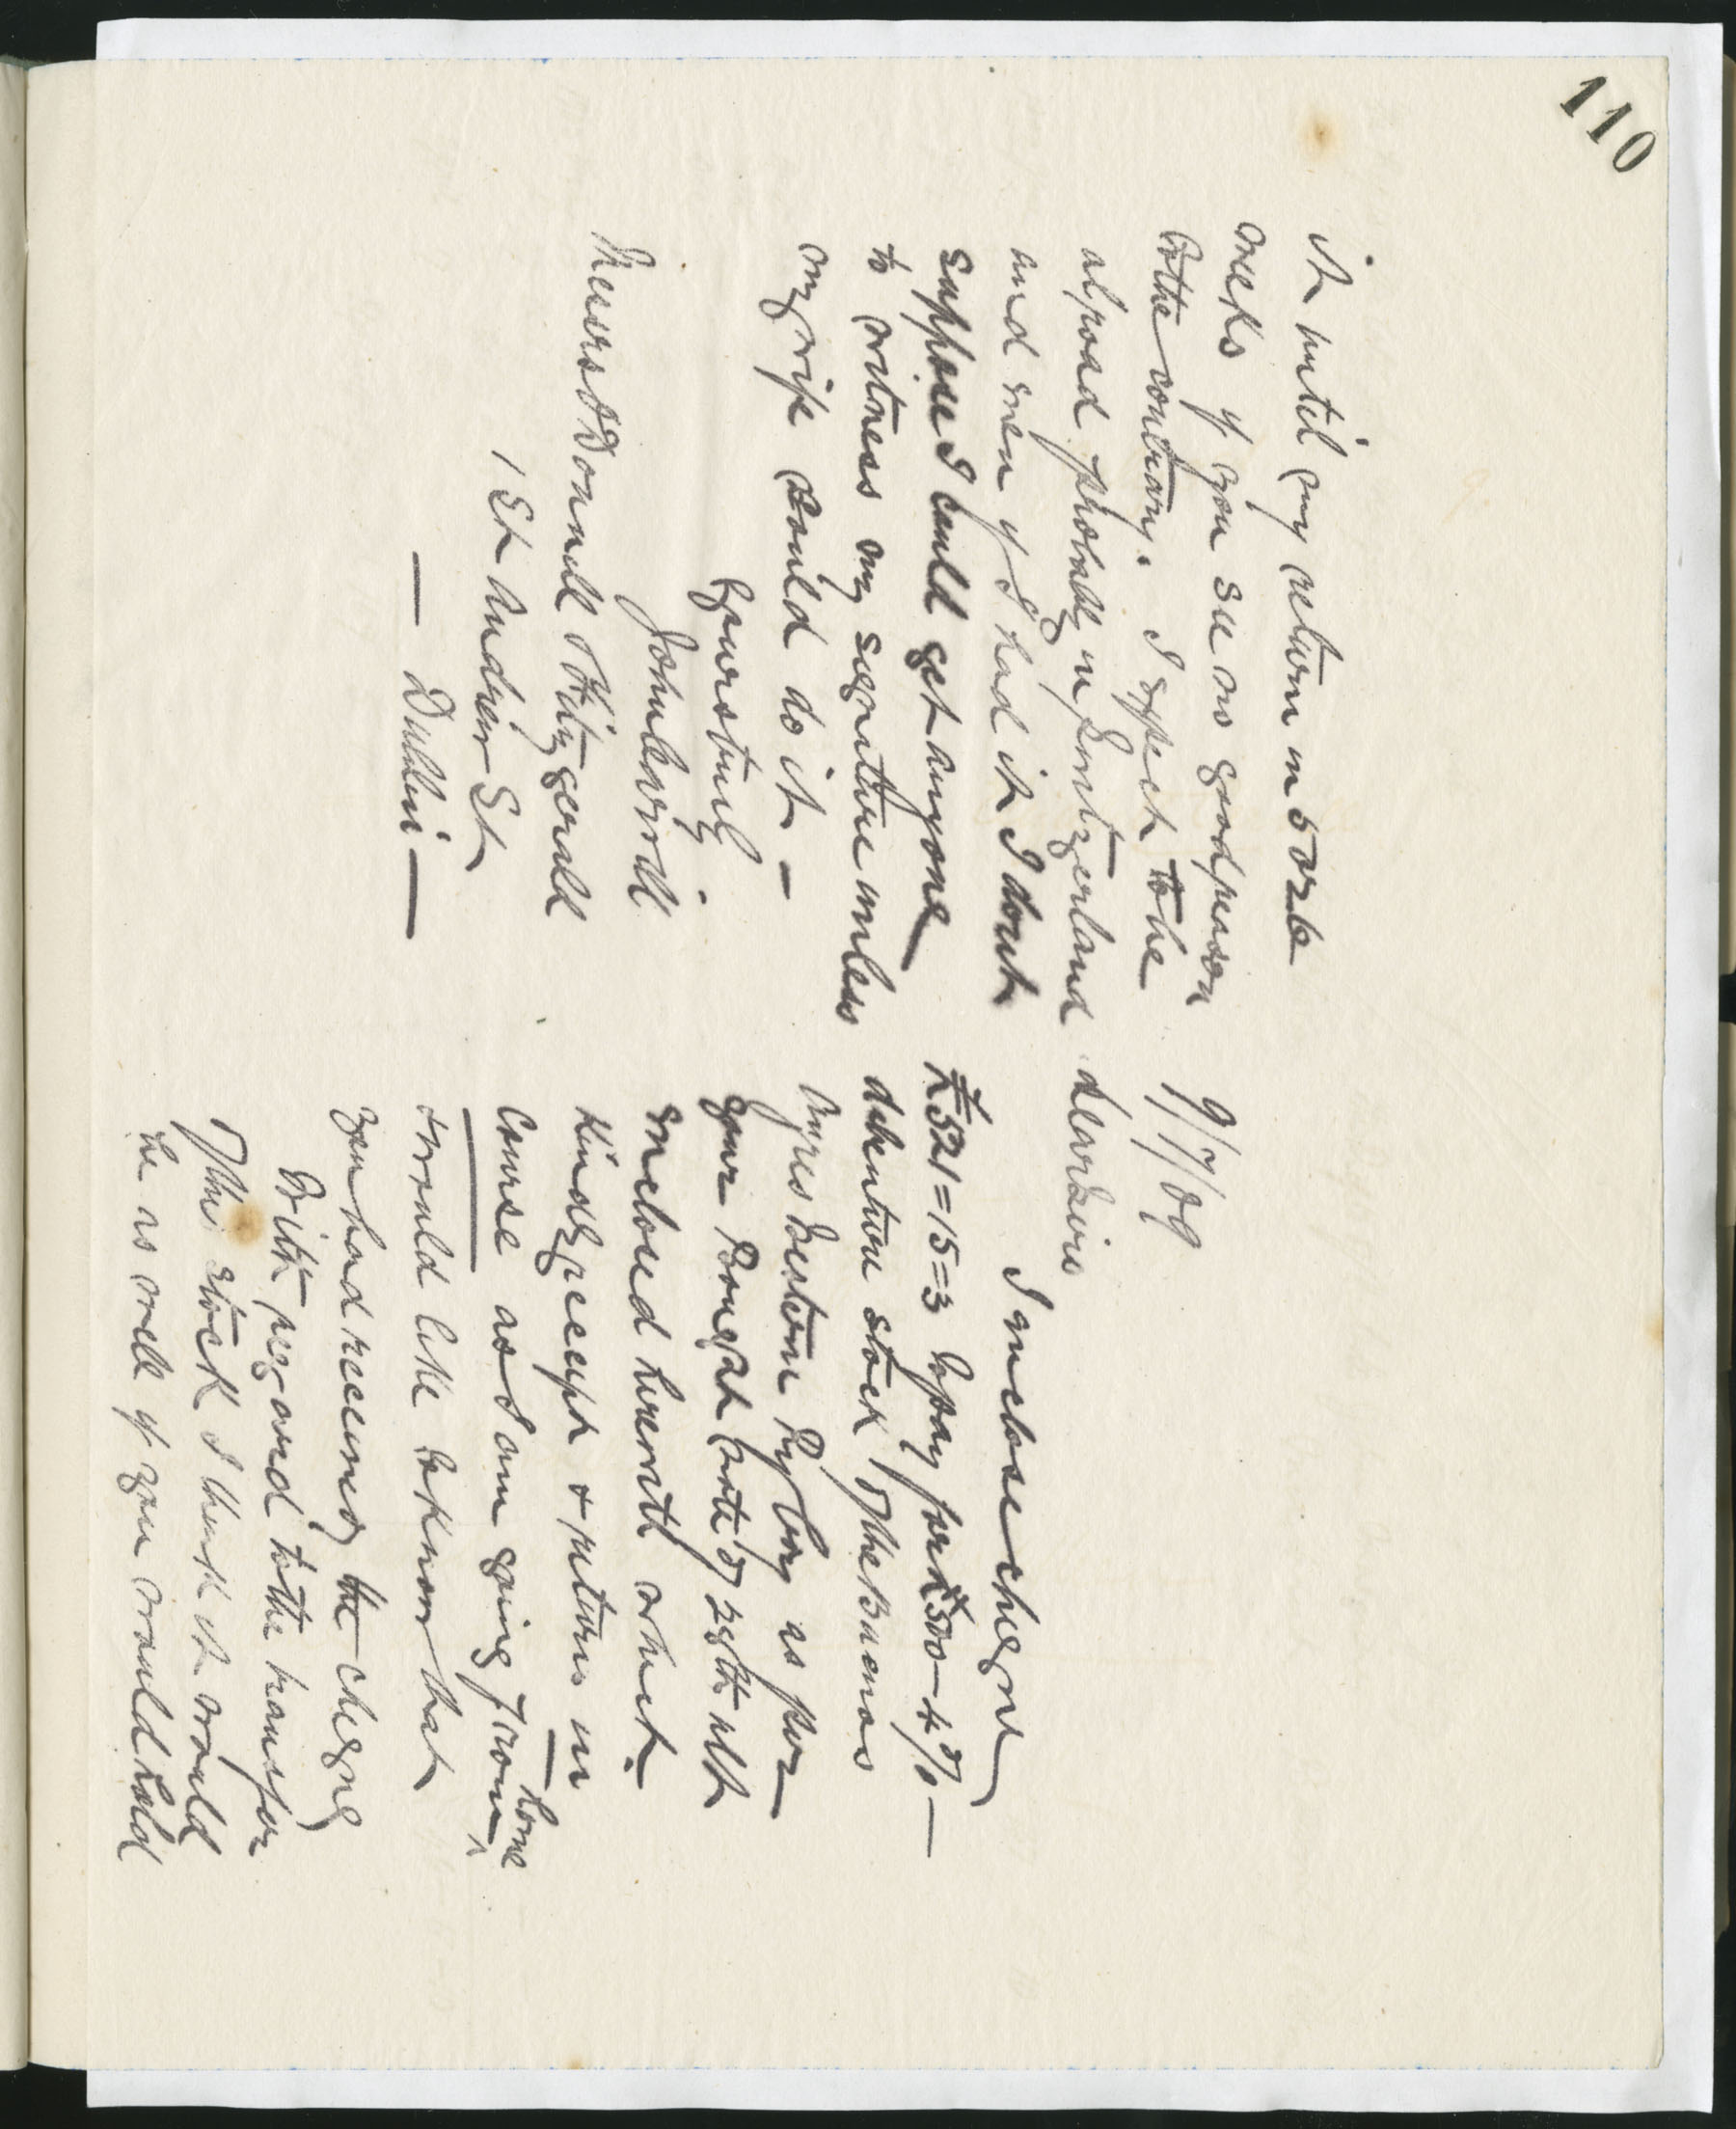 110
9/7/09
Dear Sirs
I enclose cheque
£521=15=3 to pay for £500 - 4% -
debenture stock of the Buenos
Ayres Western Ry Coy as per
your Bought note of 29th ult
enclosed herewith which
kindly receipt & return in
course as I am going from home
& would like to know that
you had received the cheque
With regard to the transfer
of the stock I think it would
be as well if you would hold
it until my return in 5 or 6
weeks if you see no good reason
to the contrary. I expect to be
abroad probably in Switzerland
and even if I had it I dont
suppose I could get anyone
to witness my signature unless
my wife could do it -
Yours truly
John
Messrs O'Donnell & Fitzgerald
1 St Andrew St
- Dublin -